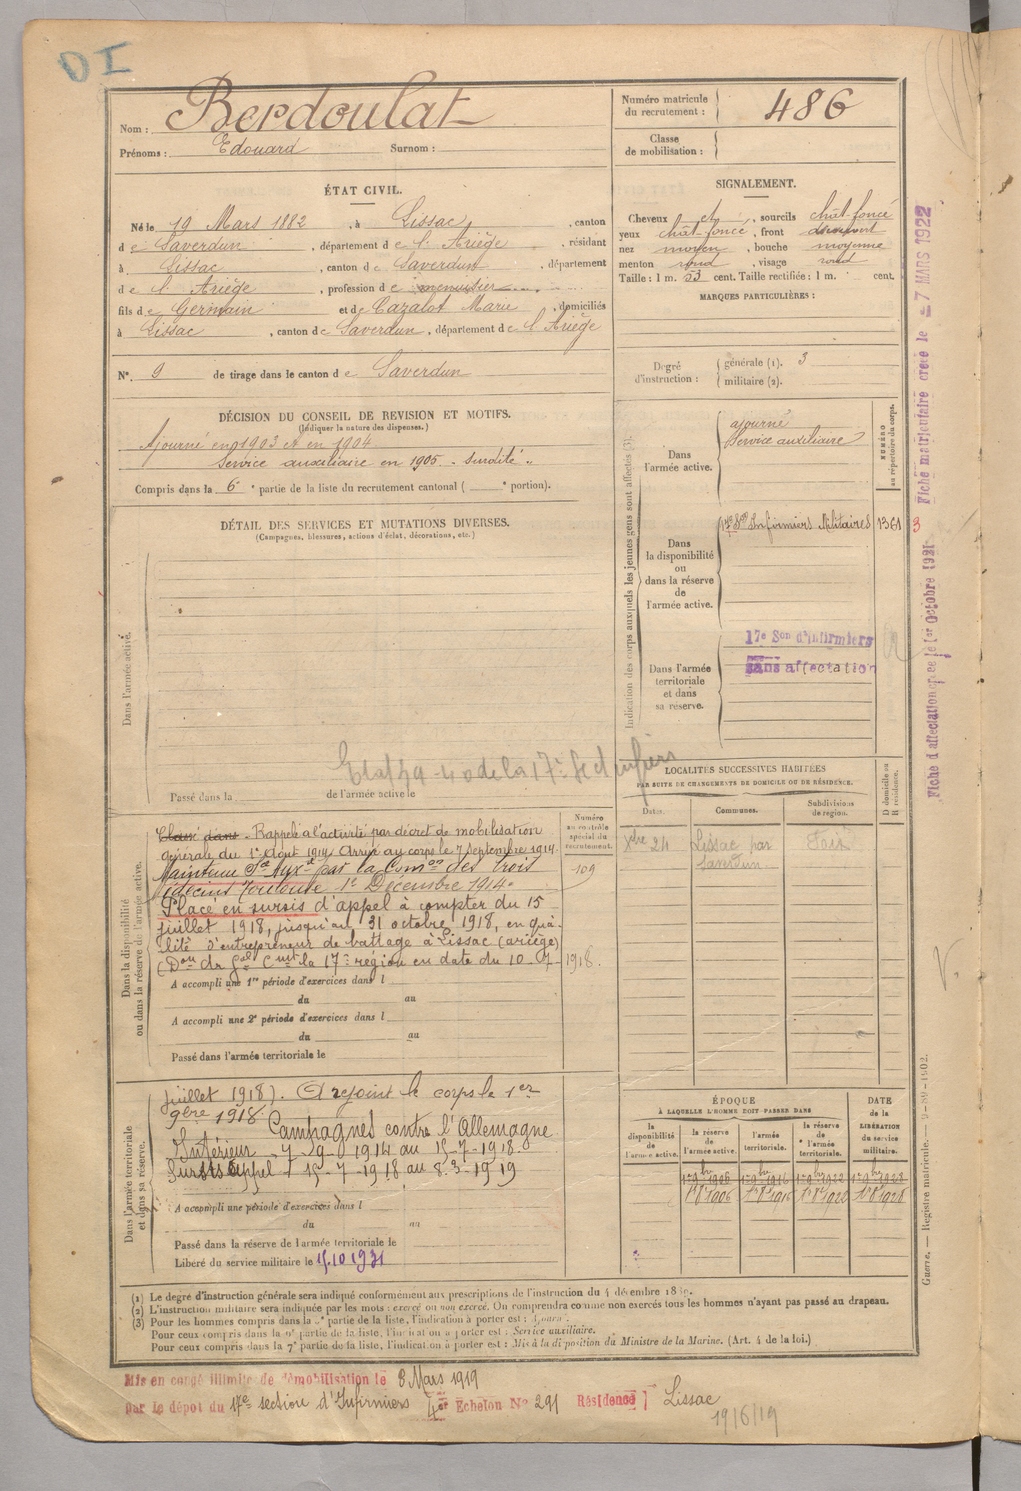 DI
Nom : Berdoulat
Prénoms : Edouard Surnom :
Numéro matricule du recrutement : 486
Classe de mobilisation :
ÉTAT CIVIL.
Né le 19 Mars 1882, à Lissac, canton
de Saverdun, département de l'Ariège, résidant
à Lissac, canton de Saverdun, département
de l'Ariège, profession de menuisier
fils de Germain et de Cazalot Marie, domiciliés
à Lissac, canton de Saverdun, département de l'Ariège
N°. 9 de tirage dans le canton de Saverdun
SIGNALEMENT.
Cheveux et, sourcils chât-foncé
yeux chât-foncé, front découvert
nez moyen, bouche moyenne
menton rond, visage rond
Taille : 1 m. 53 cent. Taille rectifiée : 1 m. cent.
MARQUES PARTICULIÈRES :
Degré d'instruction : générale (1). 3
militaire (2).
DÉCISION DU CONSEIL DE REVISION ET MOTIFS.
(Indiquer la nature des dispenses.)
Ajourné en 1903 et en 1904
Service auxiliaire en 1905 - Surdité "
Compris dans la 6e partie de la liste du recrutement cantonal ( e portion).
DÉTAIL DES SERVICES ET MUTATIONS DIVERSES.
(Campagnes, blessures, actions d'éclat, décorations, etc.)
Dans l'armée active.
Passé dans la de l'armée active le
Indication des corps auxquels les jeunes gens sont affectés (3).
NUMÉRO au répertoire du corps.
Dans l'armée active.
ajourné
Service auxiliaire
Dans la disponibilité ou dans la réserve de l'armée active.
17e Son Infirmiers Militaires 1361
3
Dans l'armée territoriale et dans sa réserve.
17e Son d'infirmiers
sans affectation
Fiche d'affectation créée le 1er Octobre 1921
Fiche matriculaire créée le 27 MARS 1922
LOCALITÉS SUCCESSIVES HABITÉES
PAR SUITE DE CHANGEMENTS DE DOMICILE OU DE RÉSIDENCE.
Dates. Communes. Subdivisions de région. D domicile ou R résidence.
Xbre 24 Lissac par Saverdun Foix
Dans la disponibilité ou dans la réserve de l'armée active.
Numéro au contrôle spécial du recrutement.
109
Classé dans. Rappelé à l'activité par décret de mobilisation
générale du 1er Août 1914. Arrivé au corps le 7 septembre 1914
Maintenu Sce Auxre par la Comon des trois
médecins Toulouse 1er Décembre 1914.
Placé en sursis d'appel à compter du 15
juillet 1918, jusqu'au 31 octobre 1918, en qua-
lité d'entrepreneur de battage à Lissac (ariège)
(Don du Gal Cmt la 17e région en date du 10-7-1918.
A accompli une 1re période d'exercices dans l
du au
A accompli une 2e période d'exercices dans l
du au
Passé dans l'armée territoriale le
Dans l'armée territoriale et dans sa réserve.
juillet 1918). A rejoint le corps le 1er
9bre 1918
Campagnes contre l'Allemagne
Intérieur 7-9-1914 au 15-7-1918
Sursis appel 15-7-1918 au 8-3-1919
A accompli une période d'exercices dans l
du au
Passé dans la réserve de l'armée territoriale le
Libéré du service militaire le 15.10 1931
ÉPOQUE
À LAQUELLE L'HOMME DOIT PASSER DANS
la disponibilité de l'armée active.
la réserve de l'armée active.
l'armée territoriale.
la réserve de l'armée territoriale.
DATE de la LIBÉRATION du service militaire.
1er 9bre 1906 1er 9bre 1916 1er 9bre 1922 1er 9bre 1928
1er 8bre 1906 1er 8bre 1916 1er 8bre 1922 1er 8bre 1928
Guerre. — Registre matricule.
(1) Le degré d'instruction générale sera indiqué conformément aux prescriptions de l'instruction du 4 décembre 1889.
(2) L'instruction militaire sera indiquée par les mots : exercé ou non exercé. On comprendra comme non exercés tous les hommes n'ayant pas passé au drapeau.
(3) Pour les hommes compris dans la partie de la liste, l'indication à porter est :
Pour ceux compris dans la partie de la liste, l'indication à porter est : Service auxiliaire.
Pour ceux compris dans la 7e partie de la liste, l'indication à porter est : Mis à la disposition du Ministre de la Marine. (Art. 4 de la loi.)
Mis en congé illimité de démobilisation le 8 Mars 1919
par le dépôt du 17e section d'Infirmiers 4er Echelon N° 291 Résidence Lissac
19/6/19